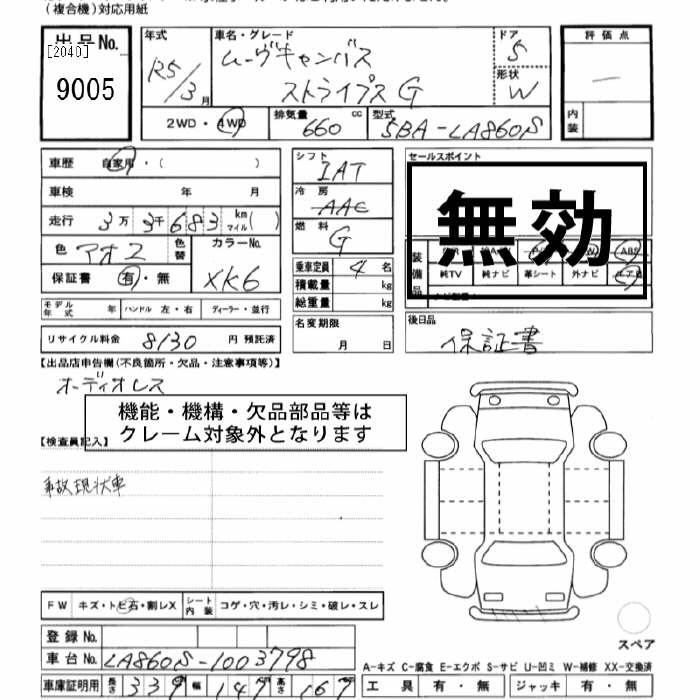 (複合機)対応用紙
出品No.
[2040]
9005
年式 R5/3月
車名・グレード ムーヴキャンバス ストライプス G
ドア 5
形状 W
評価点
内装
2WD・4WD
排気量 660 cc
型式 5BA-LA860S
車歴 自家用・( )
車検 年 月
走行 3万3千683 km マイル( )
色 アオ2
色替
カラーNo. XK6
保証書 有・無
モデル年式 年
ハンドル 左・右
ディーラー・並行
リサイクル料金 8130 円 預託済
シフト IAT
冷房 AAC
燃料 G
乗車定員 4 名
積載量 kg
総重量 kg
名変期限 月 日
セールスポイント
無効
装備品
純TV 純ナビ 革シート 外ナビ
後日品 保証書
【出品店申告欄(不良箇所・欠品・注意事項等)】
オーディオレス
機能・機構・欠品部品等は
クレーム対象外となります
【検査員記入】
事故現状車
FW キズ・トビ石・割レX
シート内装 コゲ・穴・汚レ・シミ・破レ・スレ
登録No.
車台No. LA860S-1003798
車庫証明用 長さ 339 幅 147 高さ 167
スペア
A-キズ C-腐食 E-エクボ S-サビ U-凹ミ W-補修 XX-交換済
工具 有・無 ジャッキ 有・無